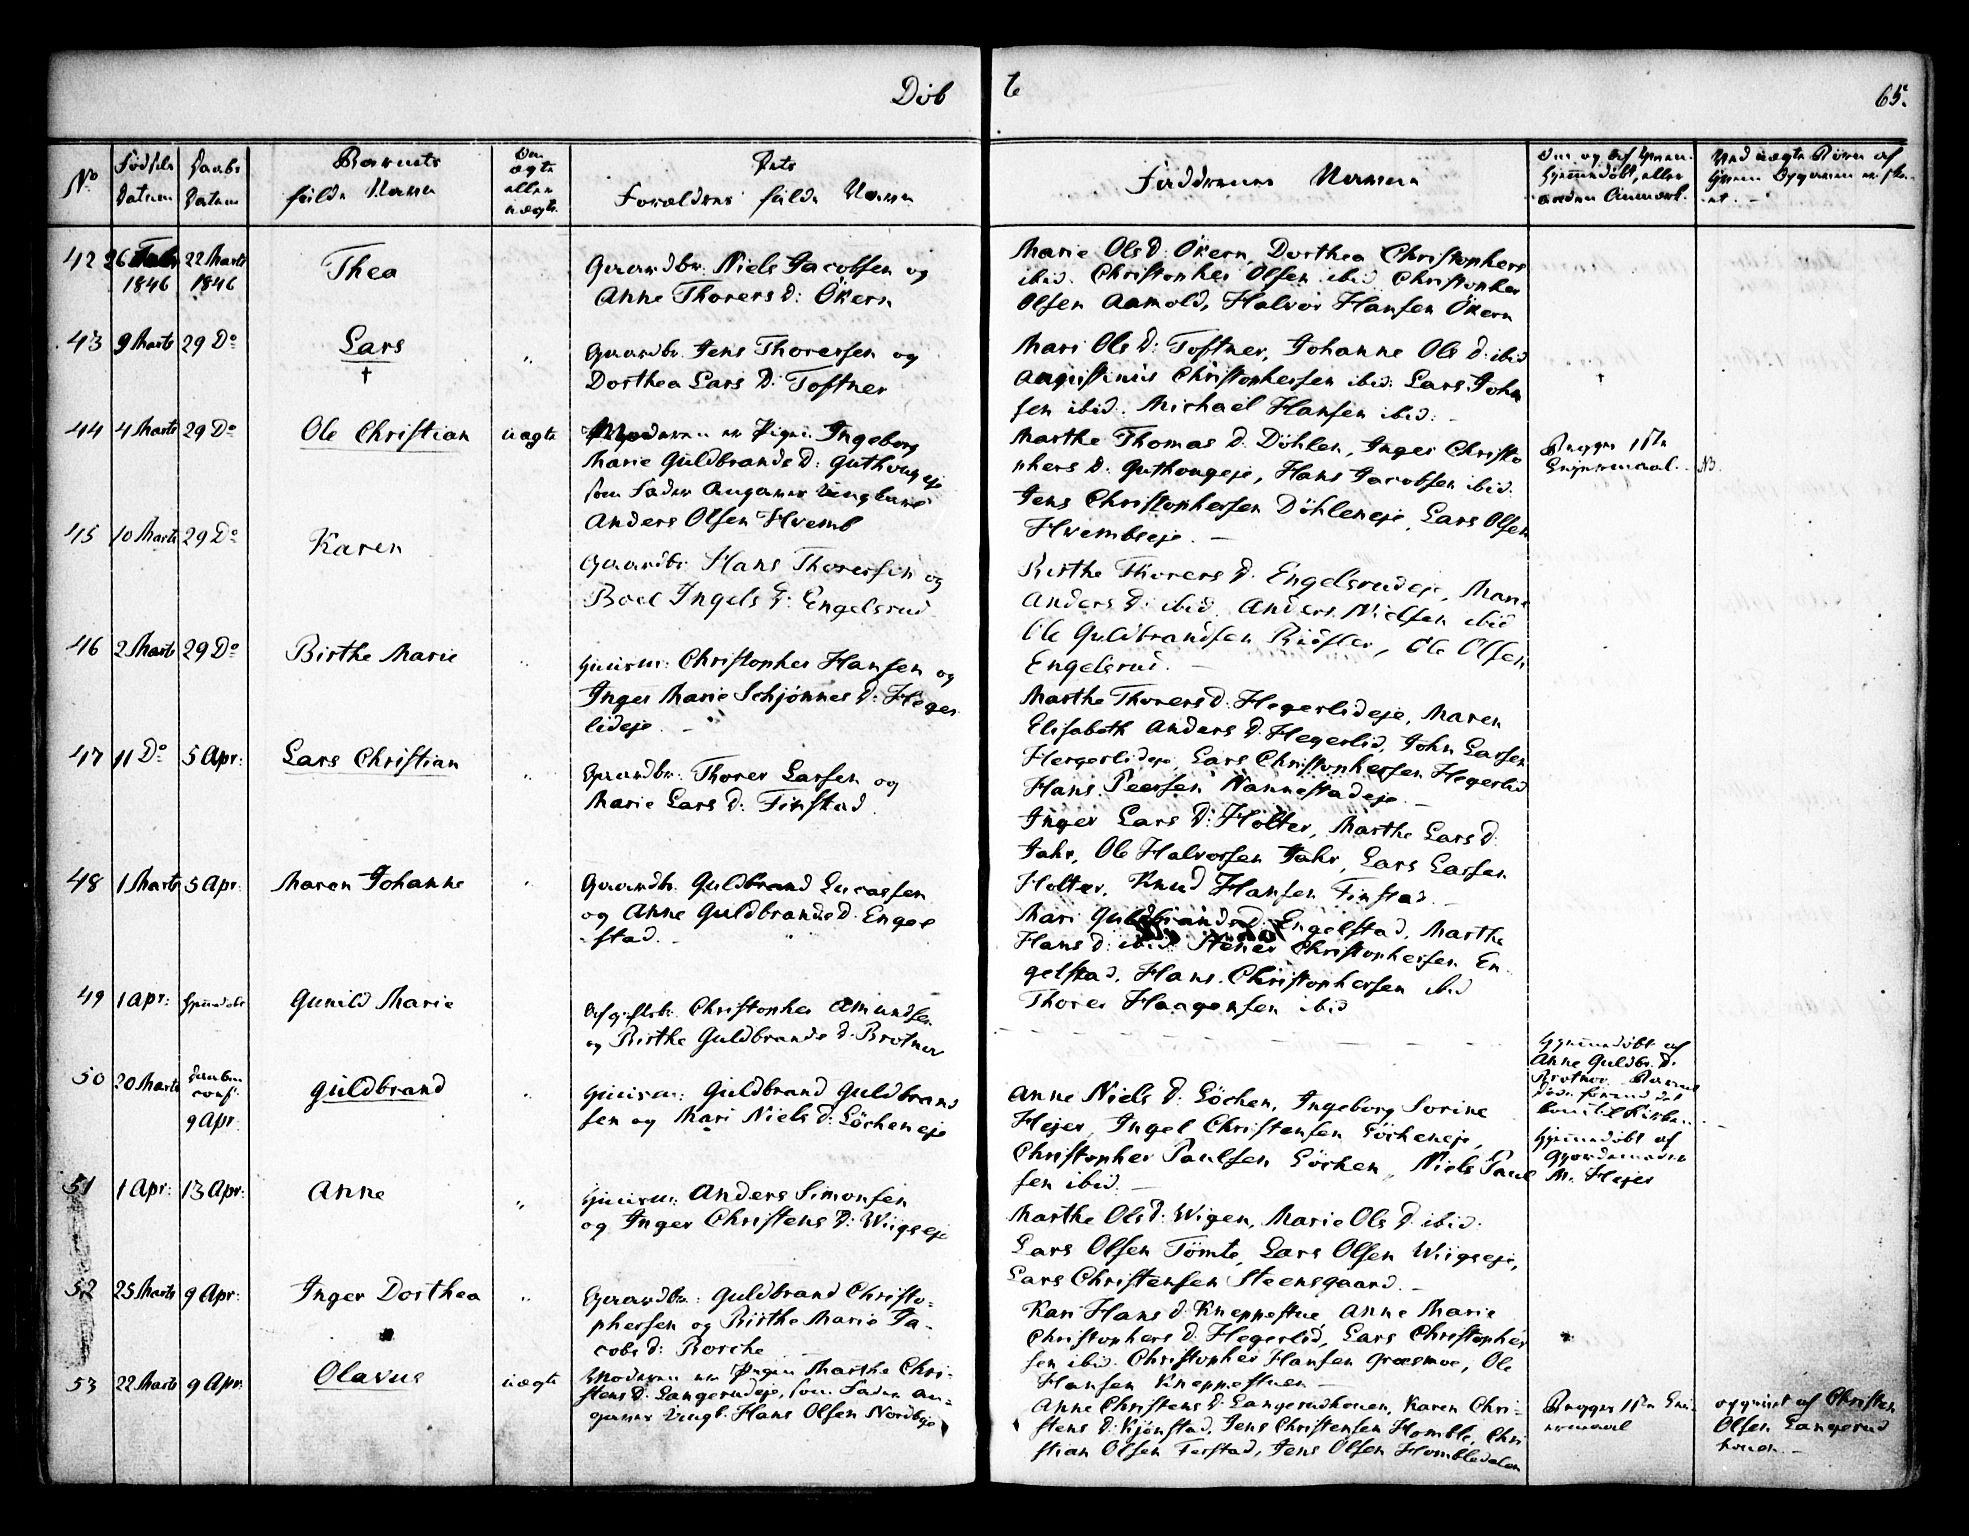 Døb
t
65.
No
Fødsels Datum
Daabs Datum
Barnets fulde Navn
Om ægte eller uægte
Dets Forældres fulde Navne
Faddernes Navne
42 26 Febr 1846 22 Marts 1846
Thea
Gaardbr. Niels Jacobsen og
Anne Thorers D: Økern
Marie Ols D. Økern, Dorthea Christophers
ibid. Christopher Olsen ibid. Christopher
Olsen Aamold, Halvor Hansen Økern
43 9 Marts 29 Do
Lars
†
Gaardbr. Jens Thorersen og
Dorthea Lars D: Toftner
Mari Ols D: Toftner, Johanne Ols D. ibid
Augustinus Christophersen ibid: Lars John
sen ibid. Michael Hansen ibid:
44 4 Marts 29 Do
Ole Christian
uægte
Moderen er Pige Ingeborg
Marie Guldbrands D: Guthougeje
som Fader angaves Ungkarl
Anders Olsen Hvemb
Marthe Thomas D. Döhlen, Inger Christo
phers D. Guthougeje, Hans Jacobsen ibid.
Jens Christophersen Döhleneje, Lars Olsen
Hvembseje.
Begges 1ste
Leiermaal.
NB.
45 10 Marts 29 Do
Karen
Gaardbr Hans Thoresen og
Boel Ingels D: Engelsrud
Birthe Thorers D. Engelsrudeje, Marie
Anders D: ibid. Anders Nielsen ibid
Ole Guldbrandsen, Ole Olsen
Engelsrud.
46 2 Marts 29 Do
Birthe Marie
Huusm: Christopher Hansen og
Inger Marie Schjønnes D: Heger
lideje.
Marthe Thorers D. Hegerlideje, Maren
Elisabeth Anders D. Hegerlid, John Larsen
Hegerlideje, Lars Christophersen Hegerlid
Hans Peersen Nannestadeje.
47 11 Do 5 Apr:
Lars Christian
Gaardbr: Thorer Larsen og
Marie Lars D: Finstad
Inger Lars D: Holter, Marthe Lars D.
Jahr, Ole Halvorsen Jahr, Lars Larsen
Holter, Knud Hansen Finstad.
48 1 Marts 5 Apr.
Maren Johanne
Gaardb. Guldbrand Lucassen
og Anne Guldbrands D. Engel
stad.
Mari Guldbrands D. Engelstad, Marthe
Hans D: ibid. Stener Christophersen En
gelstad, Hans Christophersen ibid
Thorer Haagensen ibid
49 1 Apr: Hjemdøbt
Gunild Marie
Christopher Amundsen
og Birthe Guldbrands D. Brotner
Hjemmedøbt af
Anne Guldbr. D.
Brotner. Barnet
døde forend det
kom til Kirke
50 20 Marts
Daaben conf. 9 Apr.
Guldbrand
Huusm: Guldbrand Guldbrand
sen og Mari Niels D: Löcheneje
Anne Niels D. Löchen, Ingeborg Sorine
Hejer, Ingel Christensen Löcheneje,
Christopher Paulsen Löchen, Niels Paul
sen ibid.
Hjemmedøbt af
Gjordemoder
M. Hejer
51 1 Apr: 13 Apr:
Anne
Huusm: Anders Simonsen
og Inger Christens D: Wiigseje
Marthe Ols D. Wigen, Marie Ols D. ibid:
Lars Olsen Tömte, Lars Olsen Wiigseje,
Lars Christensen Steensgaard.
52 25 Marts 9 Apr:
Inger Dorthea
Gaardbr: Guldbrand Christo-
phersen og Birthe Marie Ja-
cobs D: Borche
Kari Hans D. Kneppestue, Anne Marie
Christophers D. Hegerlid, Lars Christopher
sen ibid. Christopher Hansen Græsmoe, Ole
Hansen Kneppestuen
53 22 Marts 9 Apr.
Olavus
uægte
Moderen er Pigen Marthe Chri-
stens D. Langerudeje, som Fader an-
gives Ungk. Hans Olsen Nordbye
Anne Christens D. Langerudhouen, Karen Chri-
stens D. Kjønstad, Jens Christensen Homble, Chri
stian Olsen Torstad, Jens Olsen Hombledalen
Begges 1ste Lei
ermaal
opgivet af Christen
Olsen Langerud
houen.